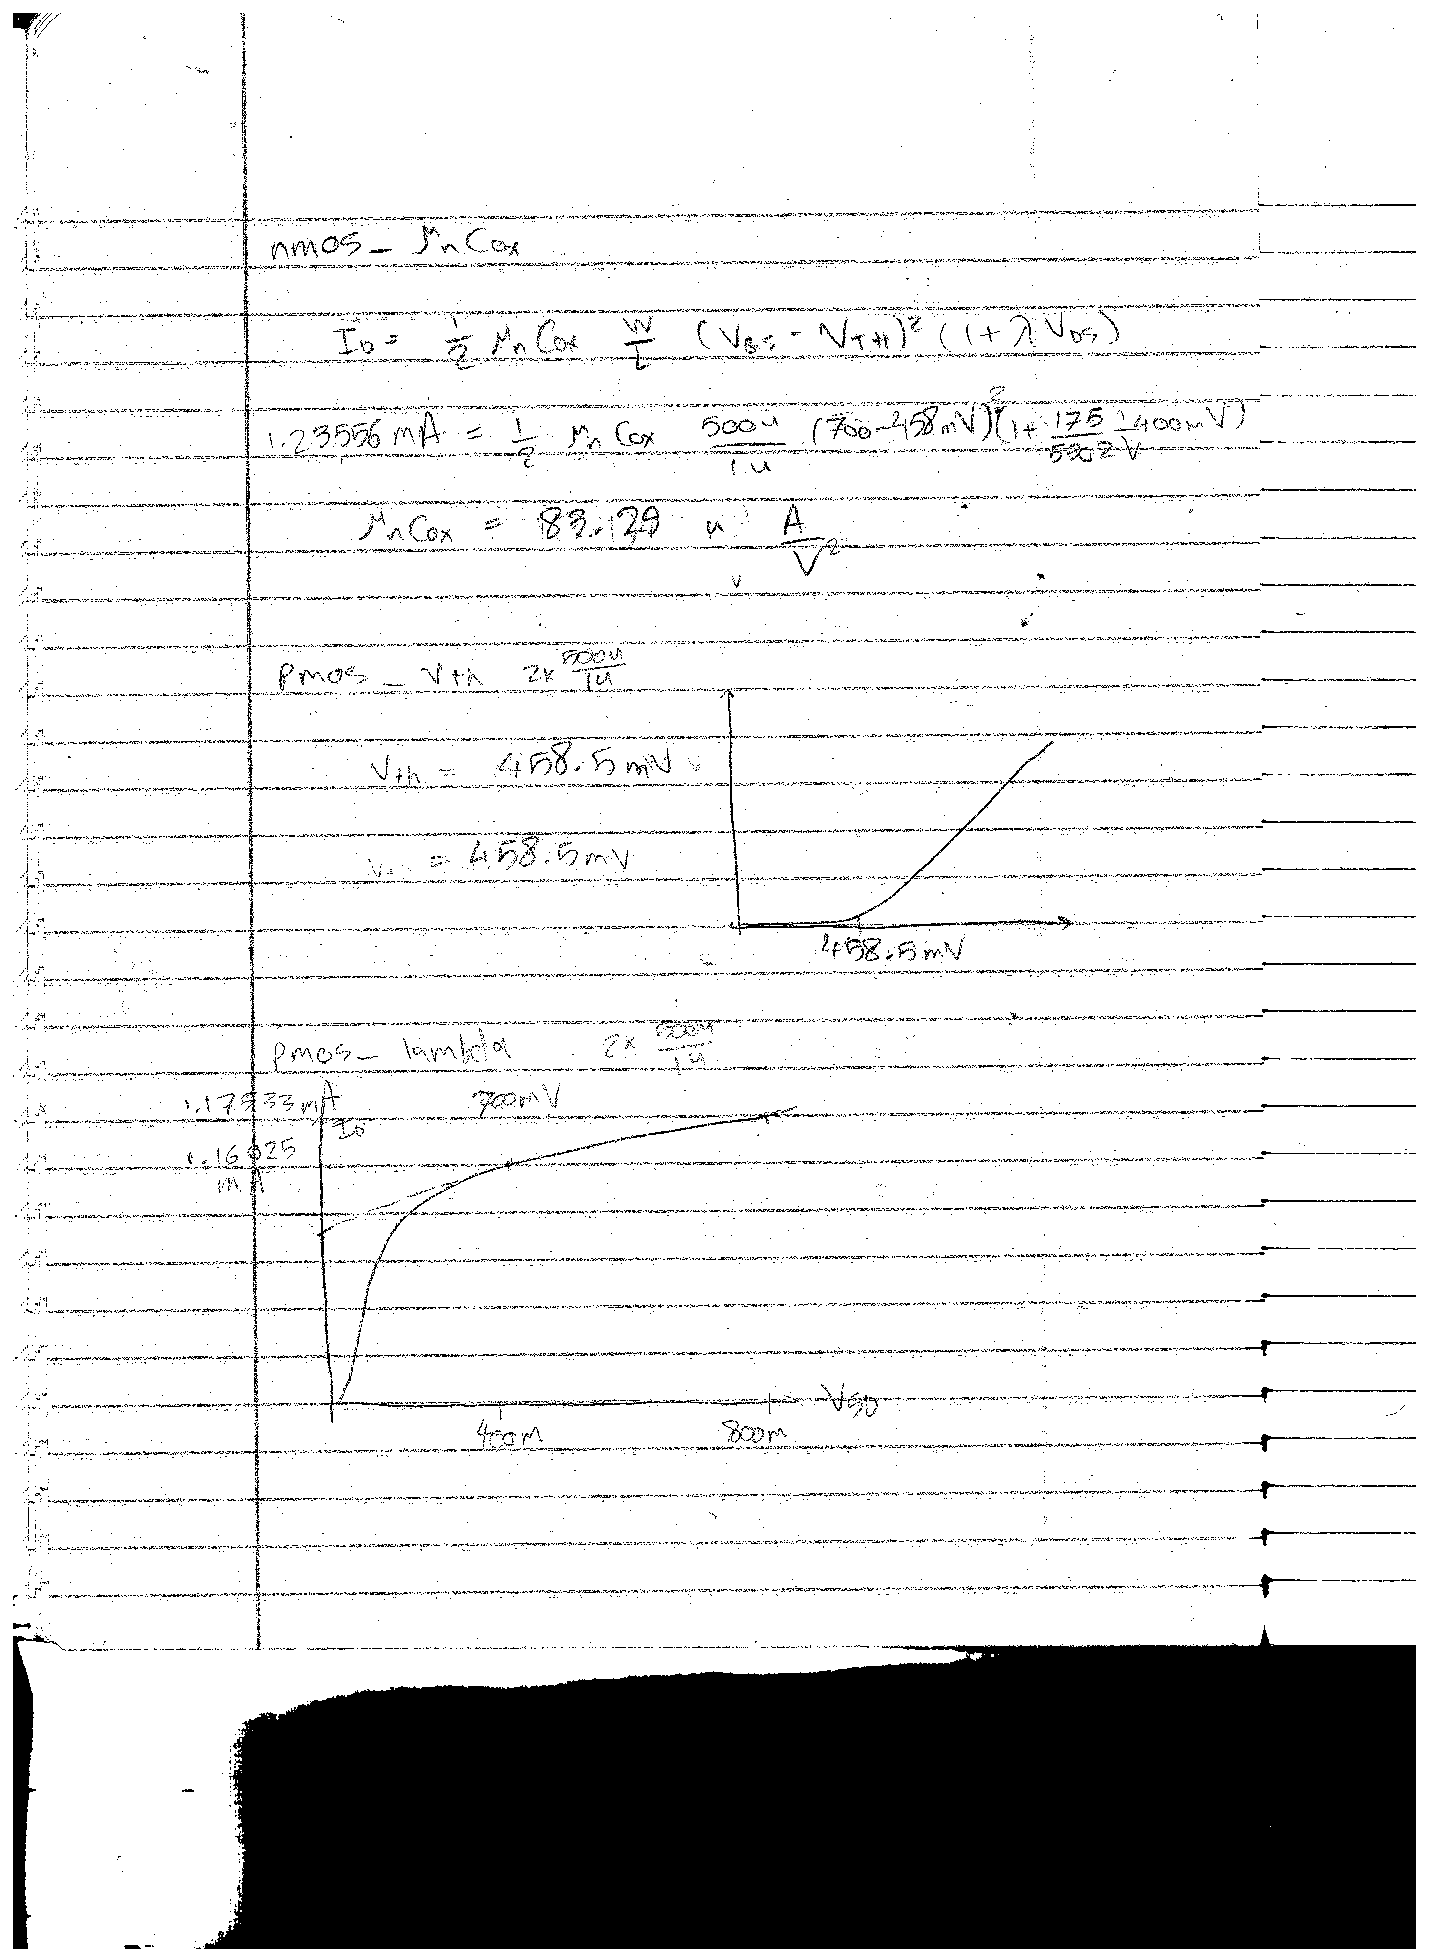 nmos - μnCox
ID = 1/2 μnCox W/L (VGS - VTH)² (1 + λ VDS)
1.23556 mA = 1/2 μnCox 500u/1u (700-458mV)² (1+ 175/5302V 400mV)
μnCox = 83.129 u A/V²
pmos - Vth 2x 500u/1u
Vth = 458.5mV
= 458.5mV
458.5mV
pmos - lambda 2x 500u/1u
1.17533 mA 700mV
ID
1.16025
mA
VSD
400m 800m